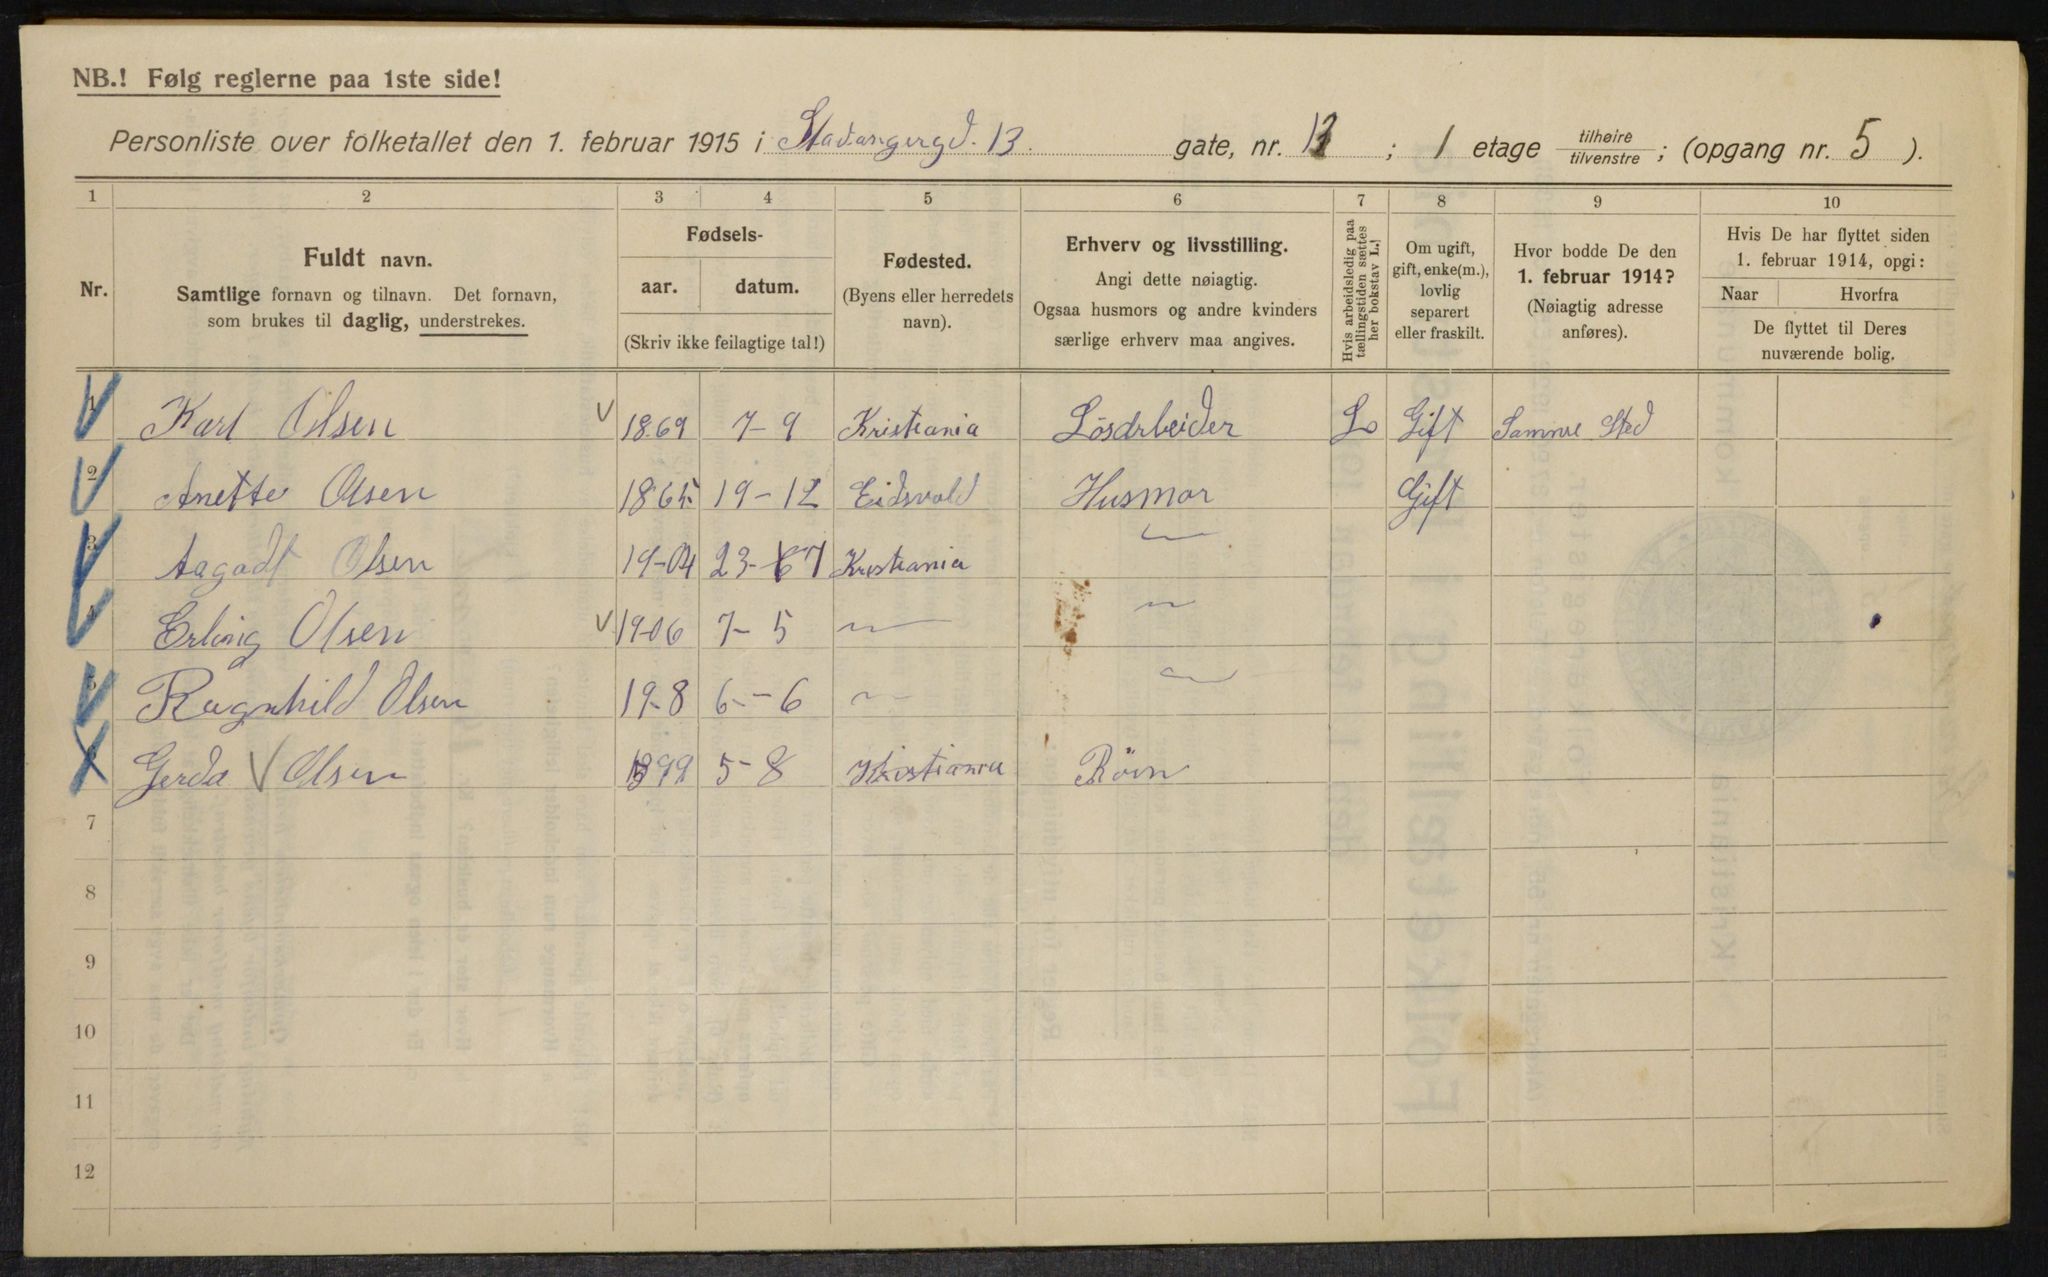 NB.! Følg reglerne paa 1ste side!
Personliste over folketallet den 1. februar 1915 i Stavangergd. 13 gate, nr. 13; 1 etage tilhøire/tilvenstre; (opgang nr. 5).
1 2 3 4 5 6 7 8 9 10
Nr.
Fuldt navn.
Samtlige fornavn og tilnavn. Det fornavn,
som brukes til daglig, understrekes.
Fødsels-
aar. datum.
(Skriv ikke feilagtige tal!)
Fødested.
(Byens eller herredets
navn).
Erhverv og livsstilling.
Angi dette nøiagtig.
Ogsaa husmors og andre kvinders
særlige erhverv maa angives.
Hvis arbeidsledig paa
tællingstiden sættes
her bokstav L.!
Om ugift,
gift, enke(m.),
lovlig
separert
eller fraskilt.
Hvor bodde De den
1. februar 1914?
(Nøiagtig adresse
anføres).
Hvis De har flyttet siden
1. februar 1914, opgi:
Naar Hvorfra
De flyttet til Deres
nuværende bolig.
1 Karl Olsen 1869 7-9 Kristiania Løsarbeider L Gift Samme Sted
2 Anette Olsen 1865 19-12 Eidsvold Husmor Gift
3 Olsen 19-04 23- Kristiania
4 Erling Olsen 19-06 7-5 —
5 Ragnhild Olsen 19-8 6-6 —
6 Gerda Olsen 1899 5-8 Kristiania
7
8
9
10
11
12